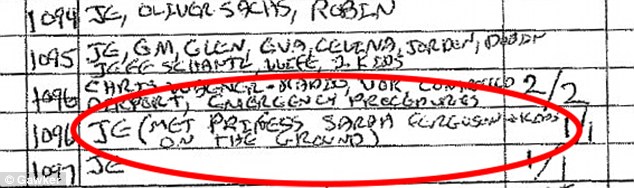 1094 JE, OLIVER SACHS, ROBIN
1095 JE, GM, GLEN, EVA, CELINA, JORDEN, DUBIN
WIFE, 2 KIDS
1096 2/2
AIRPORT, EMERGENCY PROCEDURES
1096 JE (MET PRINCESS SARAH FERGUSON + KIDS 1/1
ON THE GROUND)
1097 JE 1/1
© Gawker